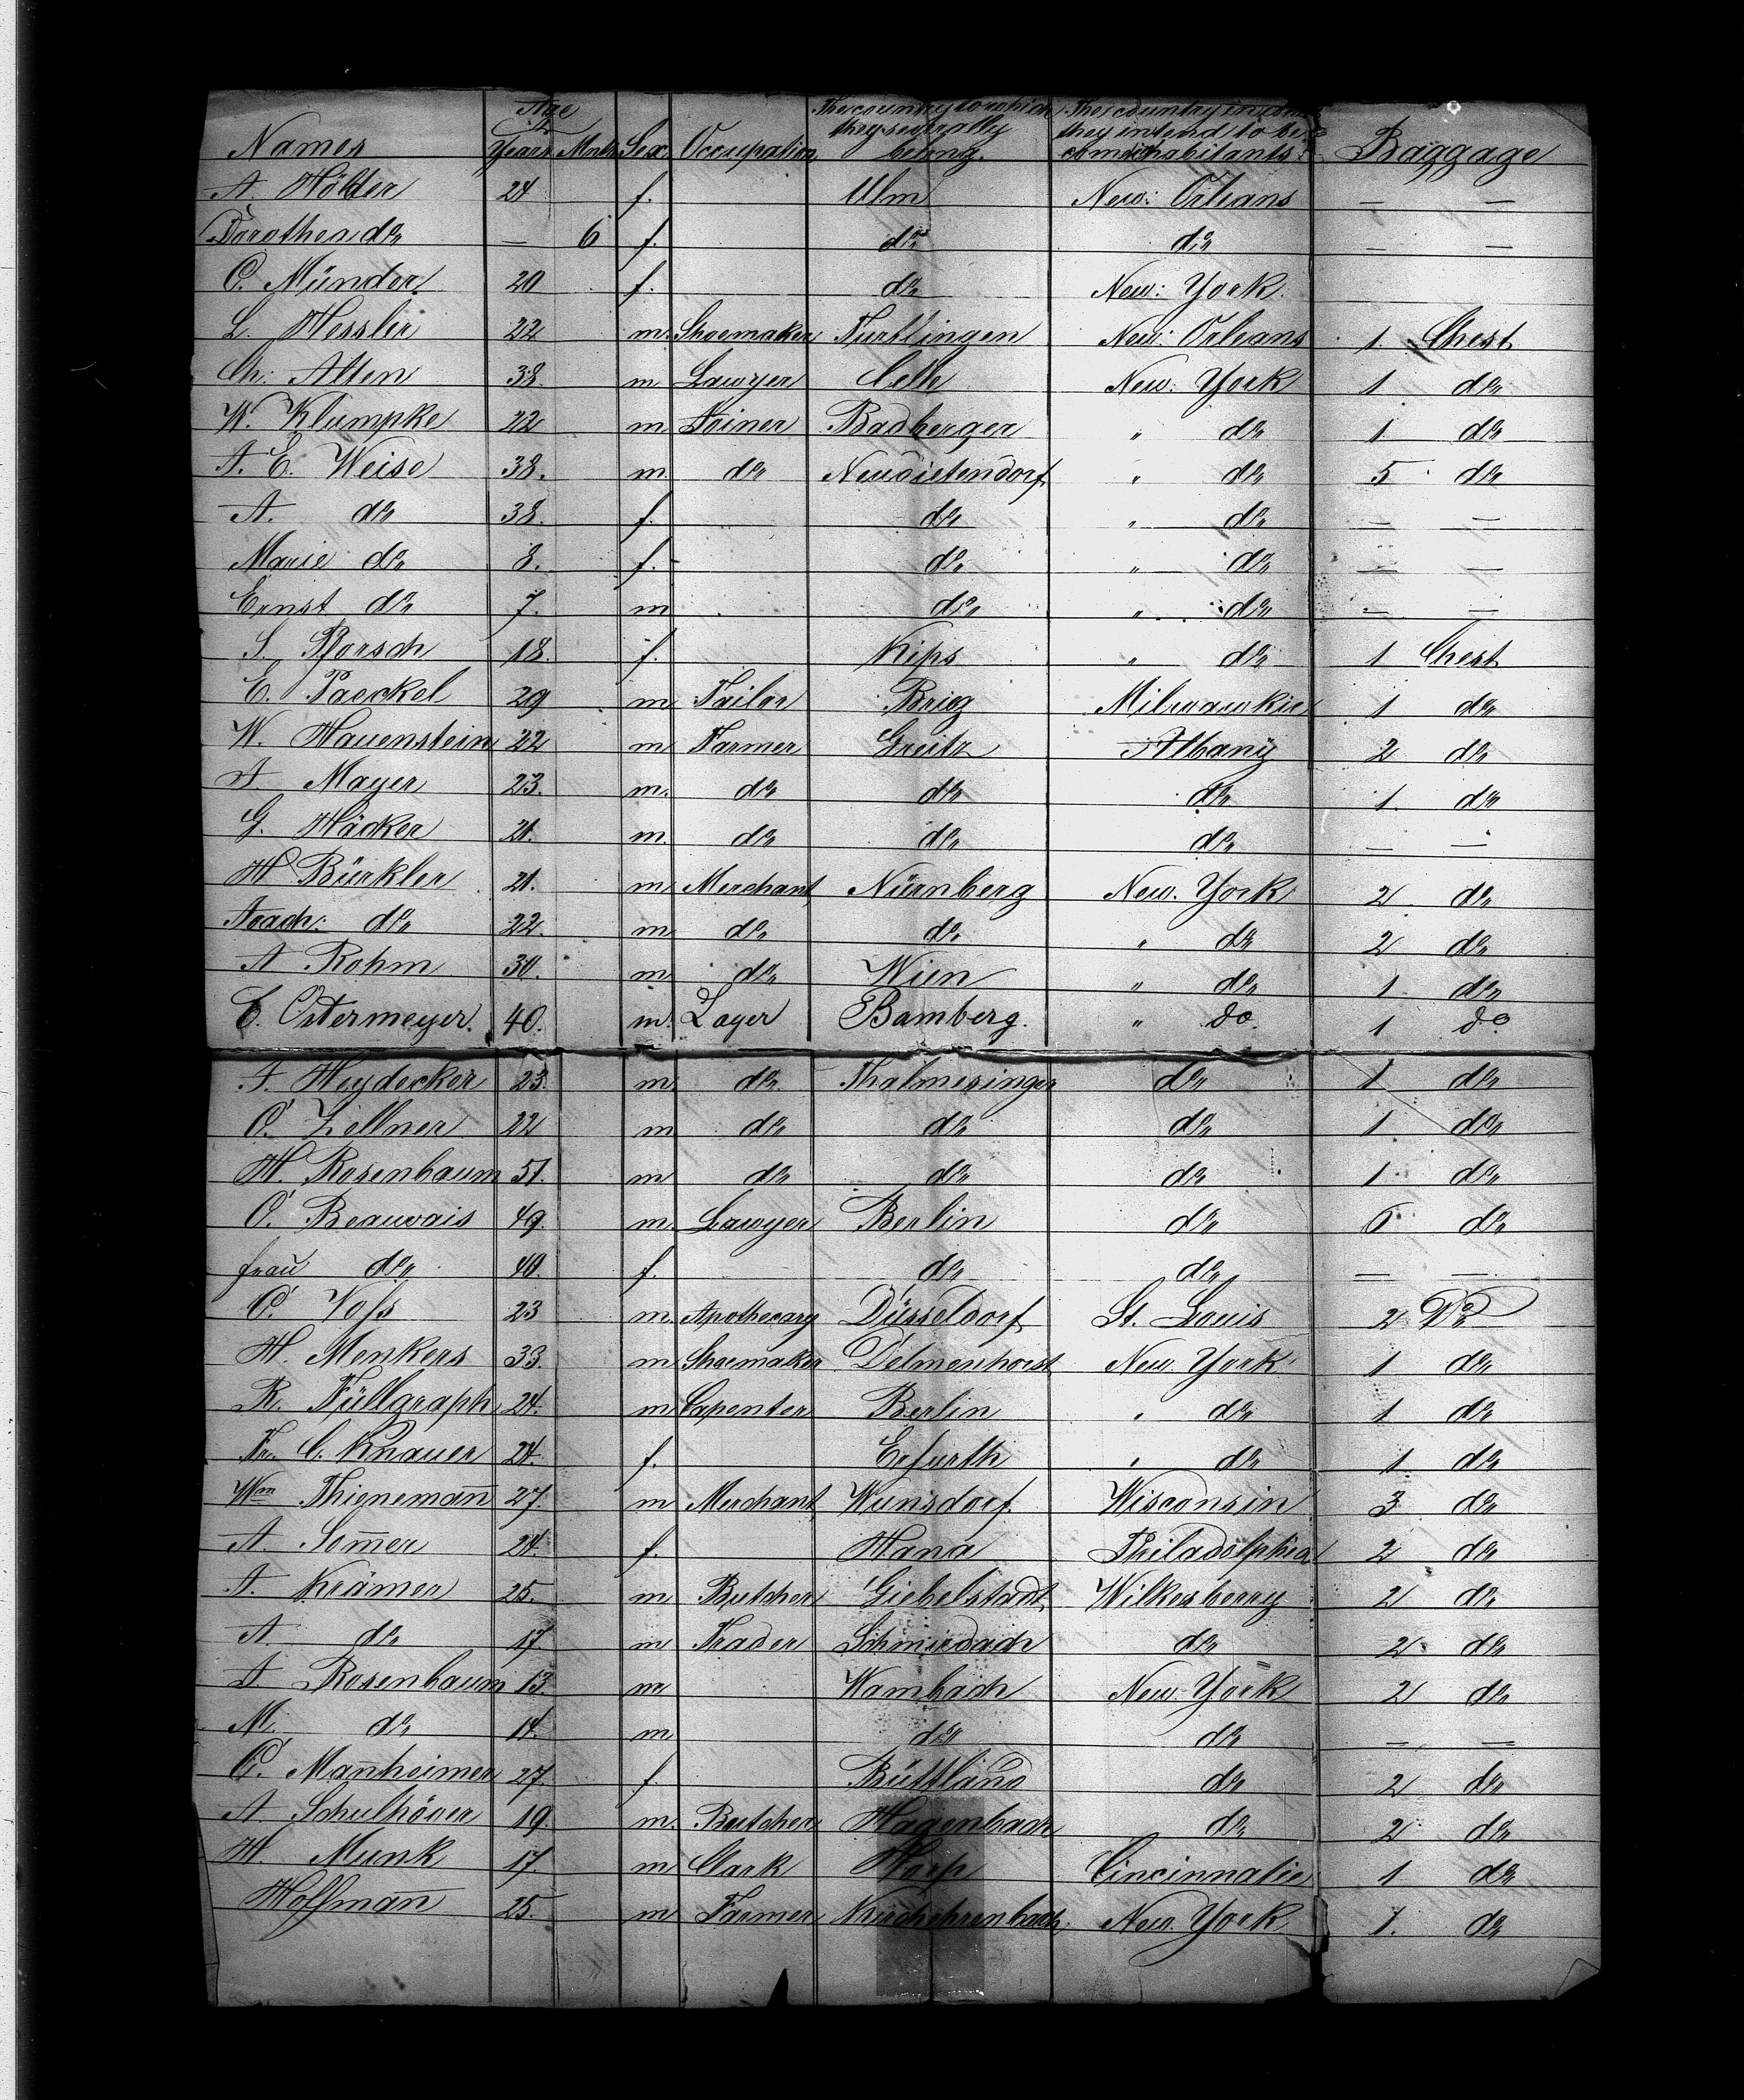 Names Age Years Mnths Sex Occupation The country to which they severally belong. The country in which they intend to become inhabitants. Baggage
A. Hölder 24 f. Ulm New: Orleans — —
Dorothea do — 6 f. do do — —
C. Münder 20 f. do New: York.
L. Hessler 22 m. Shoemaker Tuttlingen New: Orleans 1. Chest
Ch: Alten 38 m Lawyer Celle New: York 1 do
W. Klumpke 22 m Joiner Badberger " do 1 do
A. E. Weise 38. m do Neudietendorf " do 5 do
A. do 38. f. do " do — —
Marie do 8. f. do " do — —
Ernst do 7. m do " do — —
S. Pforsch 18. f. Kips " do 1 Chest
E. Paeckel 29 m Tailor Brieg Milwawkie 1 do
W. Hauenstein 22 m Farmer Greitz Albany 2 do
A. Mayer 23. m. do do do 1 do
G. Häcker 21. m. do do do — —
H Bürkler 21. m Merchant Nürnberg New. York 2 do
Joach: do 22. m do do " do 2 do
A Rohm 30. m do Wien " do 1 do
C. Ostermeyer. 40. m. Layer Bamberg. " do. 1 do
J. Heydecker 23. m do Thalmesinger do 1 do
C. Zellner 22 m do do do 1 do
H. Rosenbaum 51. m do do do 1 do
C. Beauvais 49. m. Lawyer Berlin do 6 do
frau do 40. f. do do — —
C. Voss 23 m. Apothecary Düsseldorf St. Louis 2 Do
H. Menkers 33. m Shoemaker Delmenhorst New. York 1 do
R. Füllgraph 24. m Carpenter Berlin " do 1 do
Fr. C. Knauer 24. f. Erfurth " do 1 do
Wm Thienemann 27. m Merchant Wunsdorf. Wisconsin 3 do
A. Som̄er 24. f. Hana Philadelphia 2 do
J. Krämer 25. m Butcher Giebelstadt Wilkesberry 2 do
A. do 17 m Trader Schmiedach do 2 do
J. Rosenbaum 13. m Wambach New York 2 do
M. do 14. m do do — —
C. Man̄heimer 27. f. Büttland do 2 do
A. Schulhöver 19. m. Butcher Hagenbach do 2 do
H. Munk 17. m Clark Horp Cincinnatie 1 do
Hoffman̄ 25. m Farmer Kirchehrenbach New. York 1. do